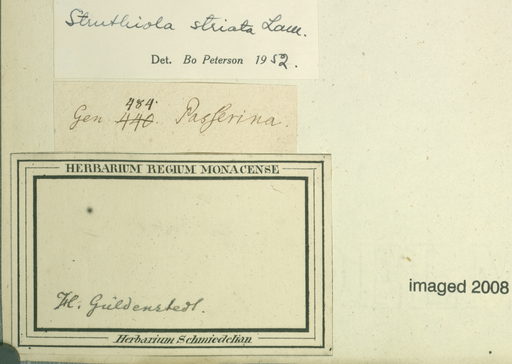 Struthiola striata Lam.
Det. Bo Peterson 1952.
484.
Gen. 440. Passerina.
HERBARIUM REGIUM MONACENSE
H. Güldenstedt.
Herbarium Schmiedelian
imaged 2008